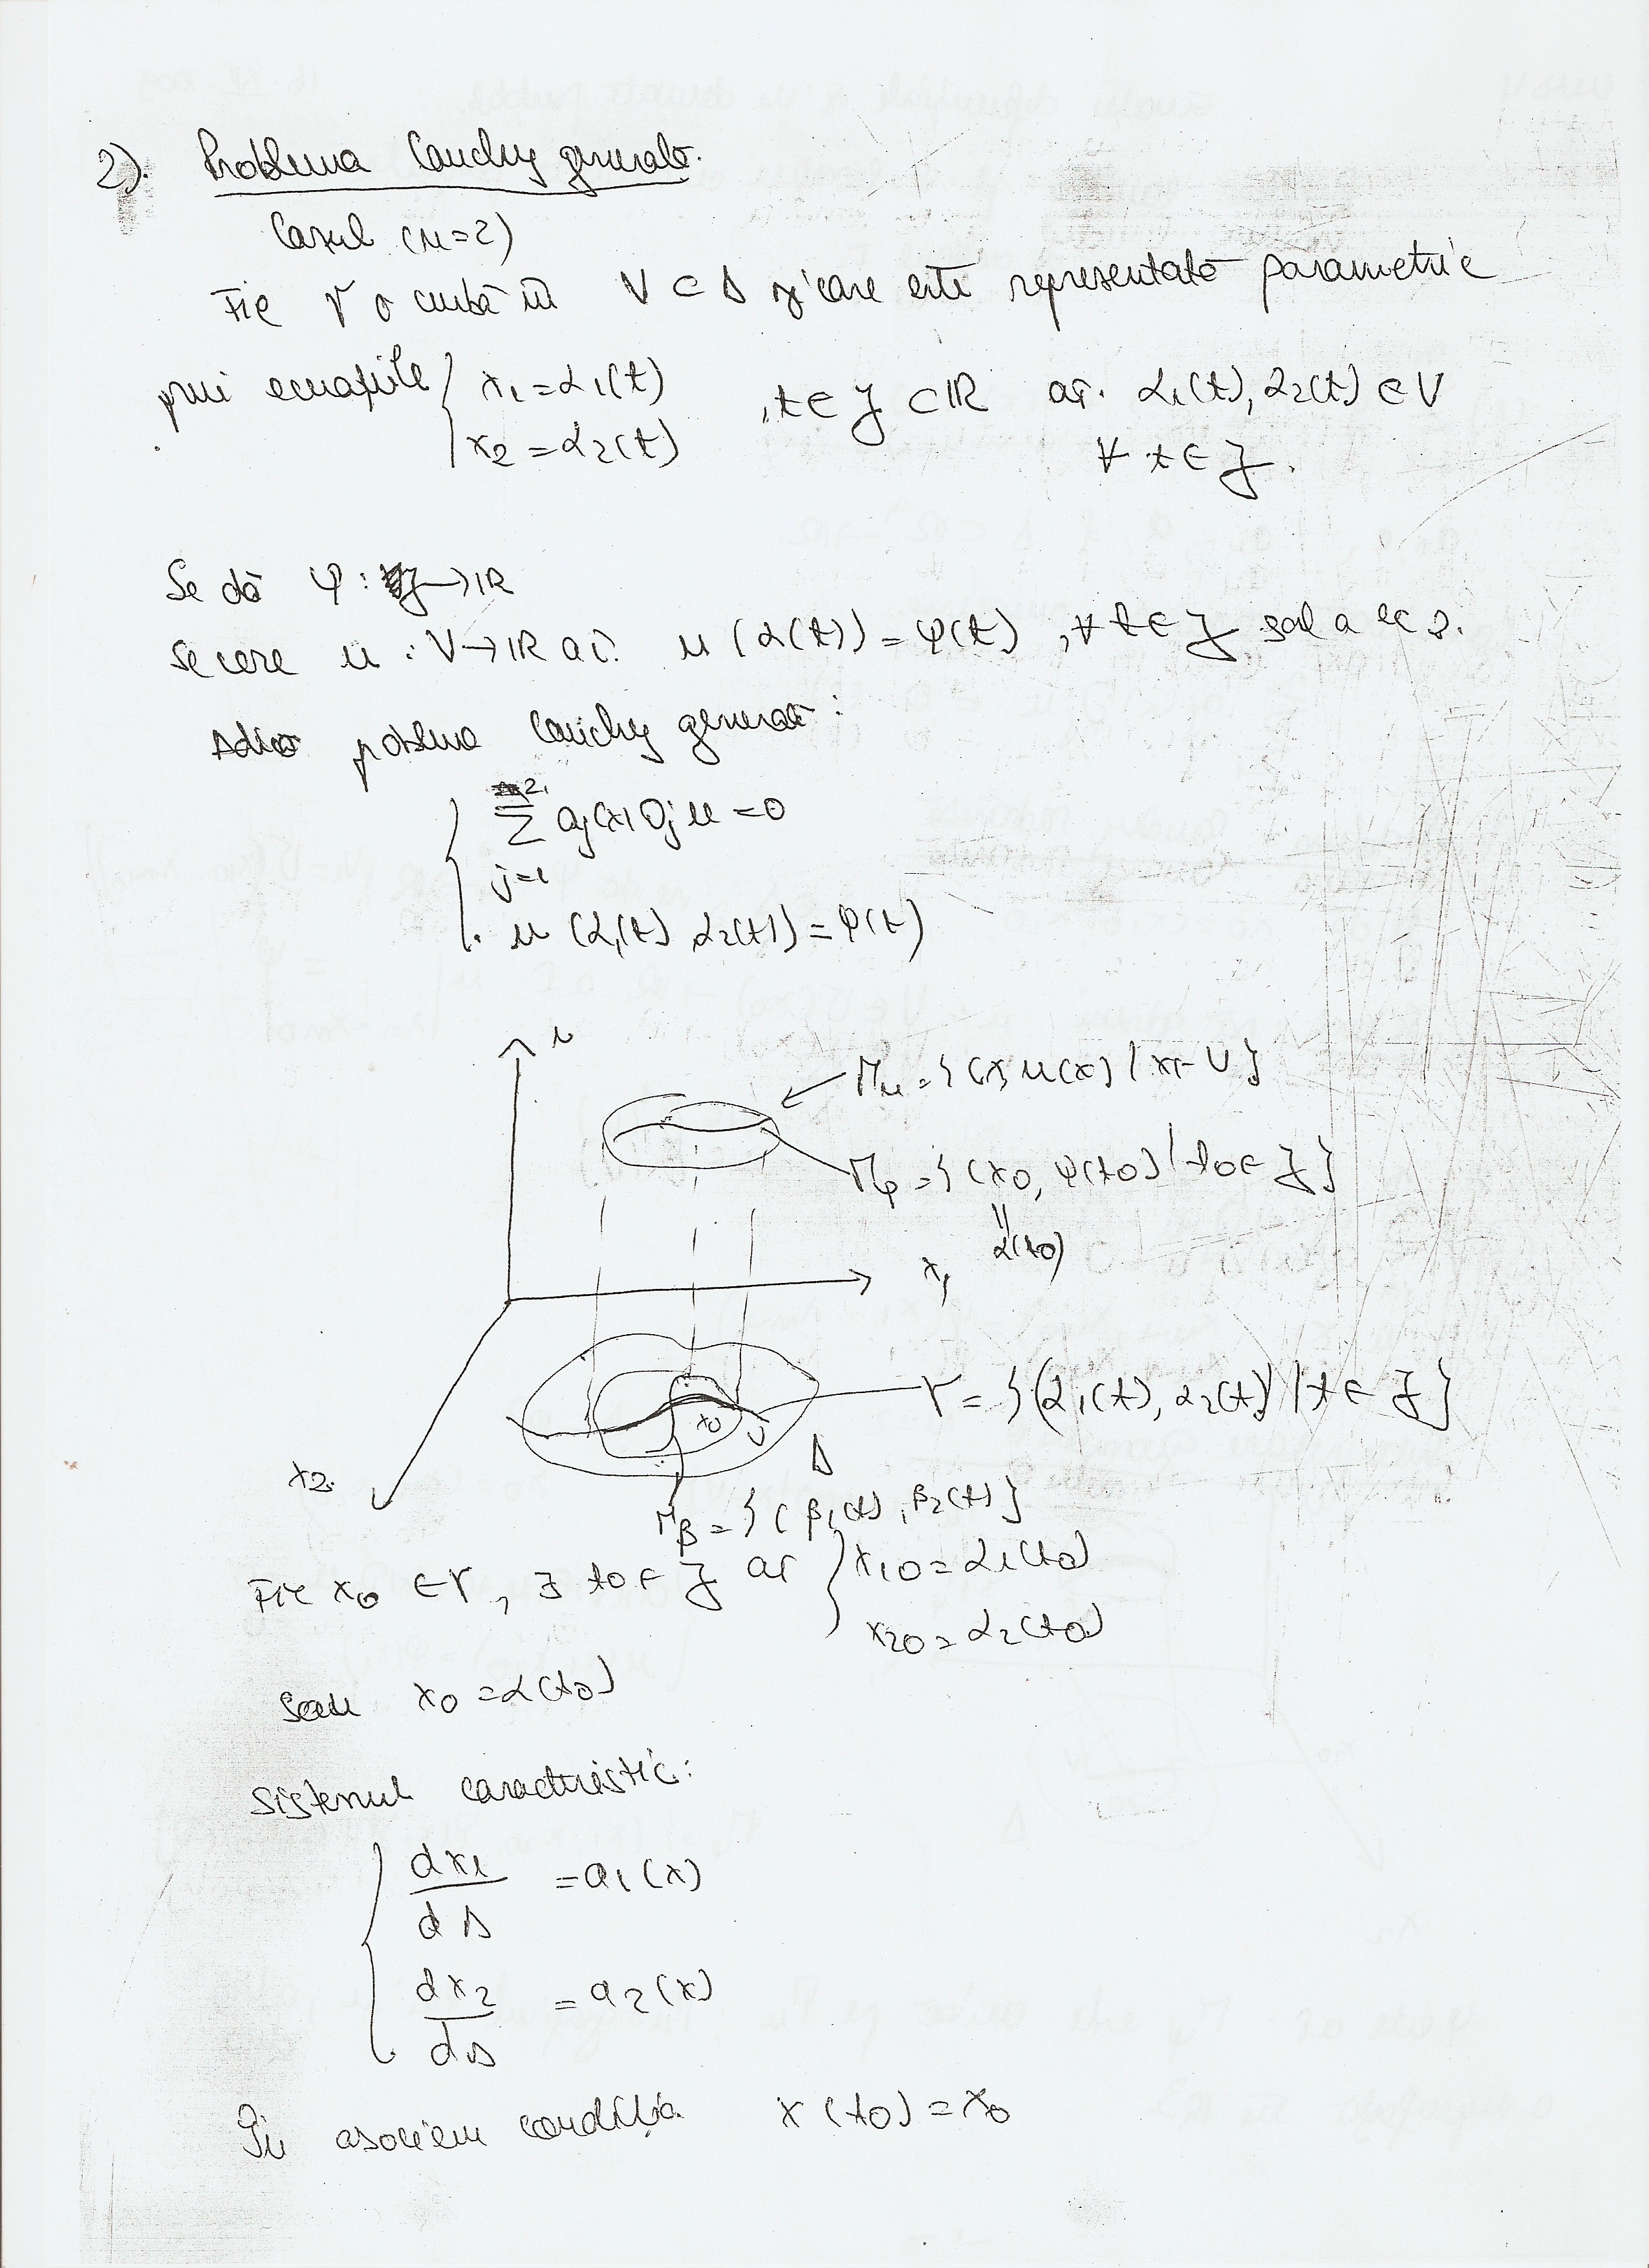 2). Problema Cauchy generală.
Cazul (n=2)
Fie γ o curbă în V ⊂ Δ și care este reprezentată parametric
prin ecuațiile { x₁ = α₁(t) , t ∈ J ⊂ ℝ aî. α₁(t), α₂(t) ∈ V
x₂ = α₂(t) ∀ t ∈ J.
Se dă φ : J → ℝ
Se cere u : V → ℝ aî. u(α(t)) = φ(t) , ∀ t ∈ J sol a ec 2.
Adică poblema Cauchy generală :
{ ∑_{j=1}^{2} aj(x) Dj u = 0
u (α₁(t), α₂(t)) = φ(t)
u
Γu = { (x, u(x) | x ∈ V }
Γφ = { (x₀, φ(t₀) | t₀ ∈ J }
||
α(t₀)
x₁
γ = { (α₁(t), α₂(t)) | t ∈ J }
x₀ V
Δ
x₂
Γβ = { ( β₁(t), β₂(t) }
Fie x₀ ∈ γ, ∃ t₀ ∈ J aî { x₁₀ = α₁(t₀)
x₂₀ = α₂(t₀)
sau x₀ = α(t₀)
Sistemul caracteristic:
{ dx₁/ds = a₁(x)
dx₂/ds = a₂(x)
Îi asociem condiția x(t₀) = x₀